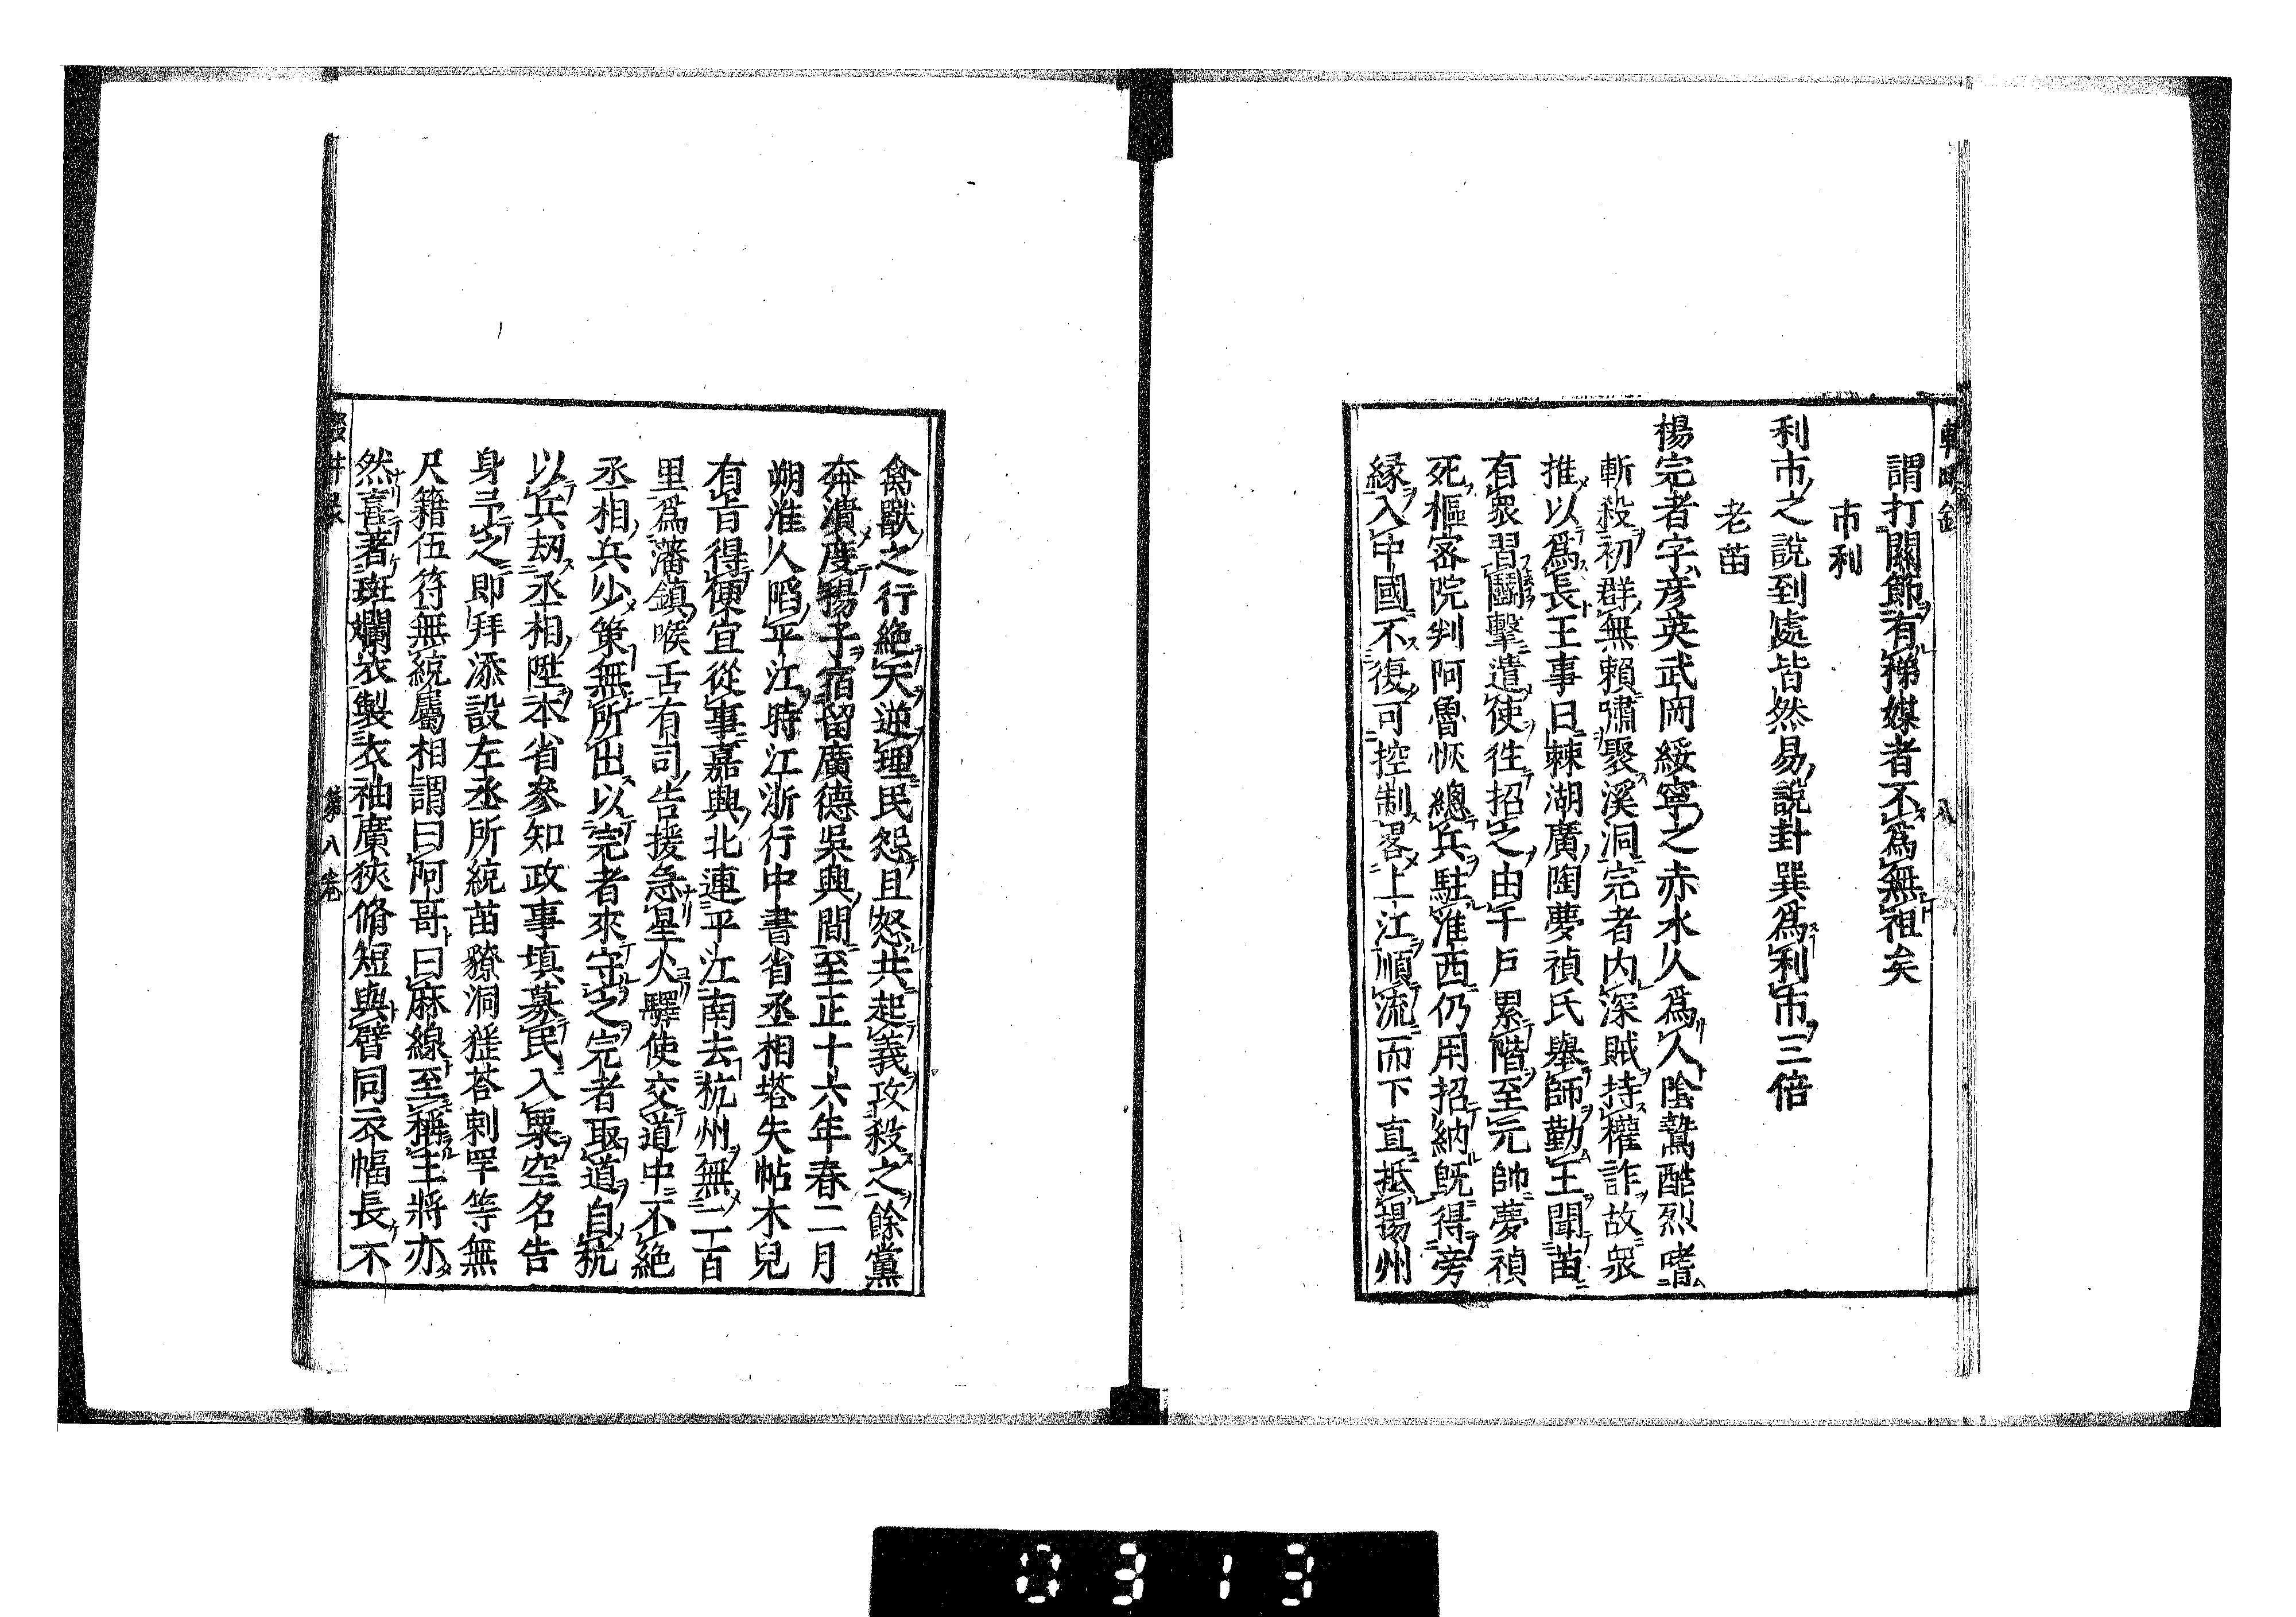 謂打關節有梯媒者不爲無祖矣
市利
利市之說到處皆然易說卦巽爲利市三倍
老苗
楊完者字彦英武岡綏寧之赤水人爲人陰鷙酷烈嗜
斬殺初群無頼嘯聚溪洞完者内深賊持權詐故衆
推以爲長王事日棘湖廣陶夢禎氏舉師勤王聞苗
有衆習鬪擊遣使往招之由千戸累階至元帥夢禎
死樞宻院判阿魯恢總兵駐淮西仍用招納旣得旁
縁入中國不復可控制畧上江順流而下直抵揚州
禽獸之行絶天逆理民怨且怒共起義攻殺之餘黨
奔潰度揚子宿留廣德吳興間至正十六年春二月
朔淮人䧟平江時江浙行中書省丞相塔失帖木兒
有旨得便宜從事嘉興北連平江南去杭州無二百
里爲藩鎮喉舌有司告援急星火驛使交道中不絶
丞相兵少策無所出以完者來守之完者取道自杭
以兵刼丞相陞本省參知政事填募民入粟空名告
身予之即拜添設左丞所統苗獠洞猺荅剌罕等無
尺籍伍符無統屬相謂曰阿哥曰麻線至稱主將亦
然喜著斑斕衣製衣袖廣狹脩短與臂同衣幅長不
第八巻
八
0313